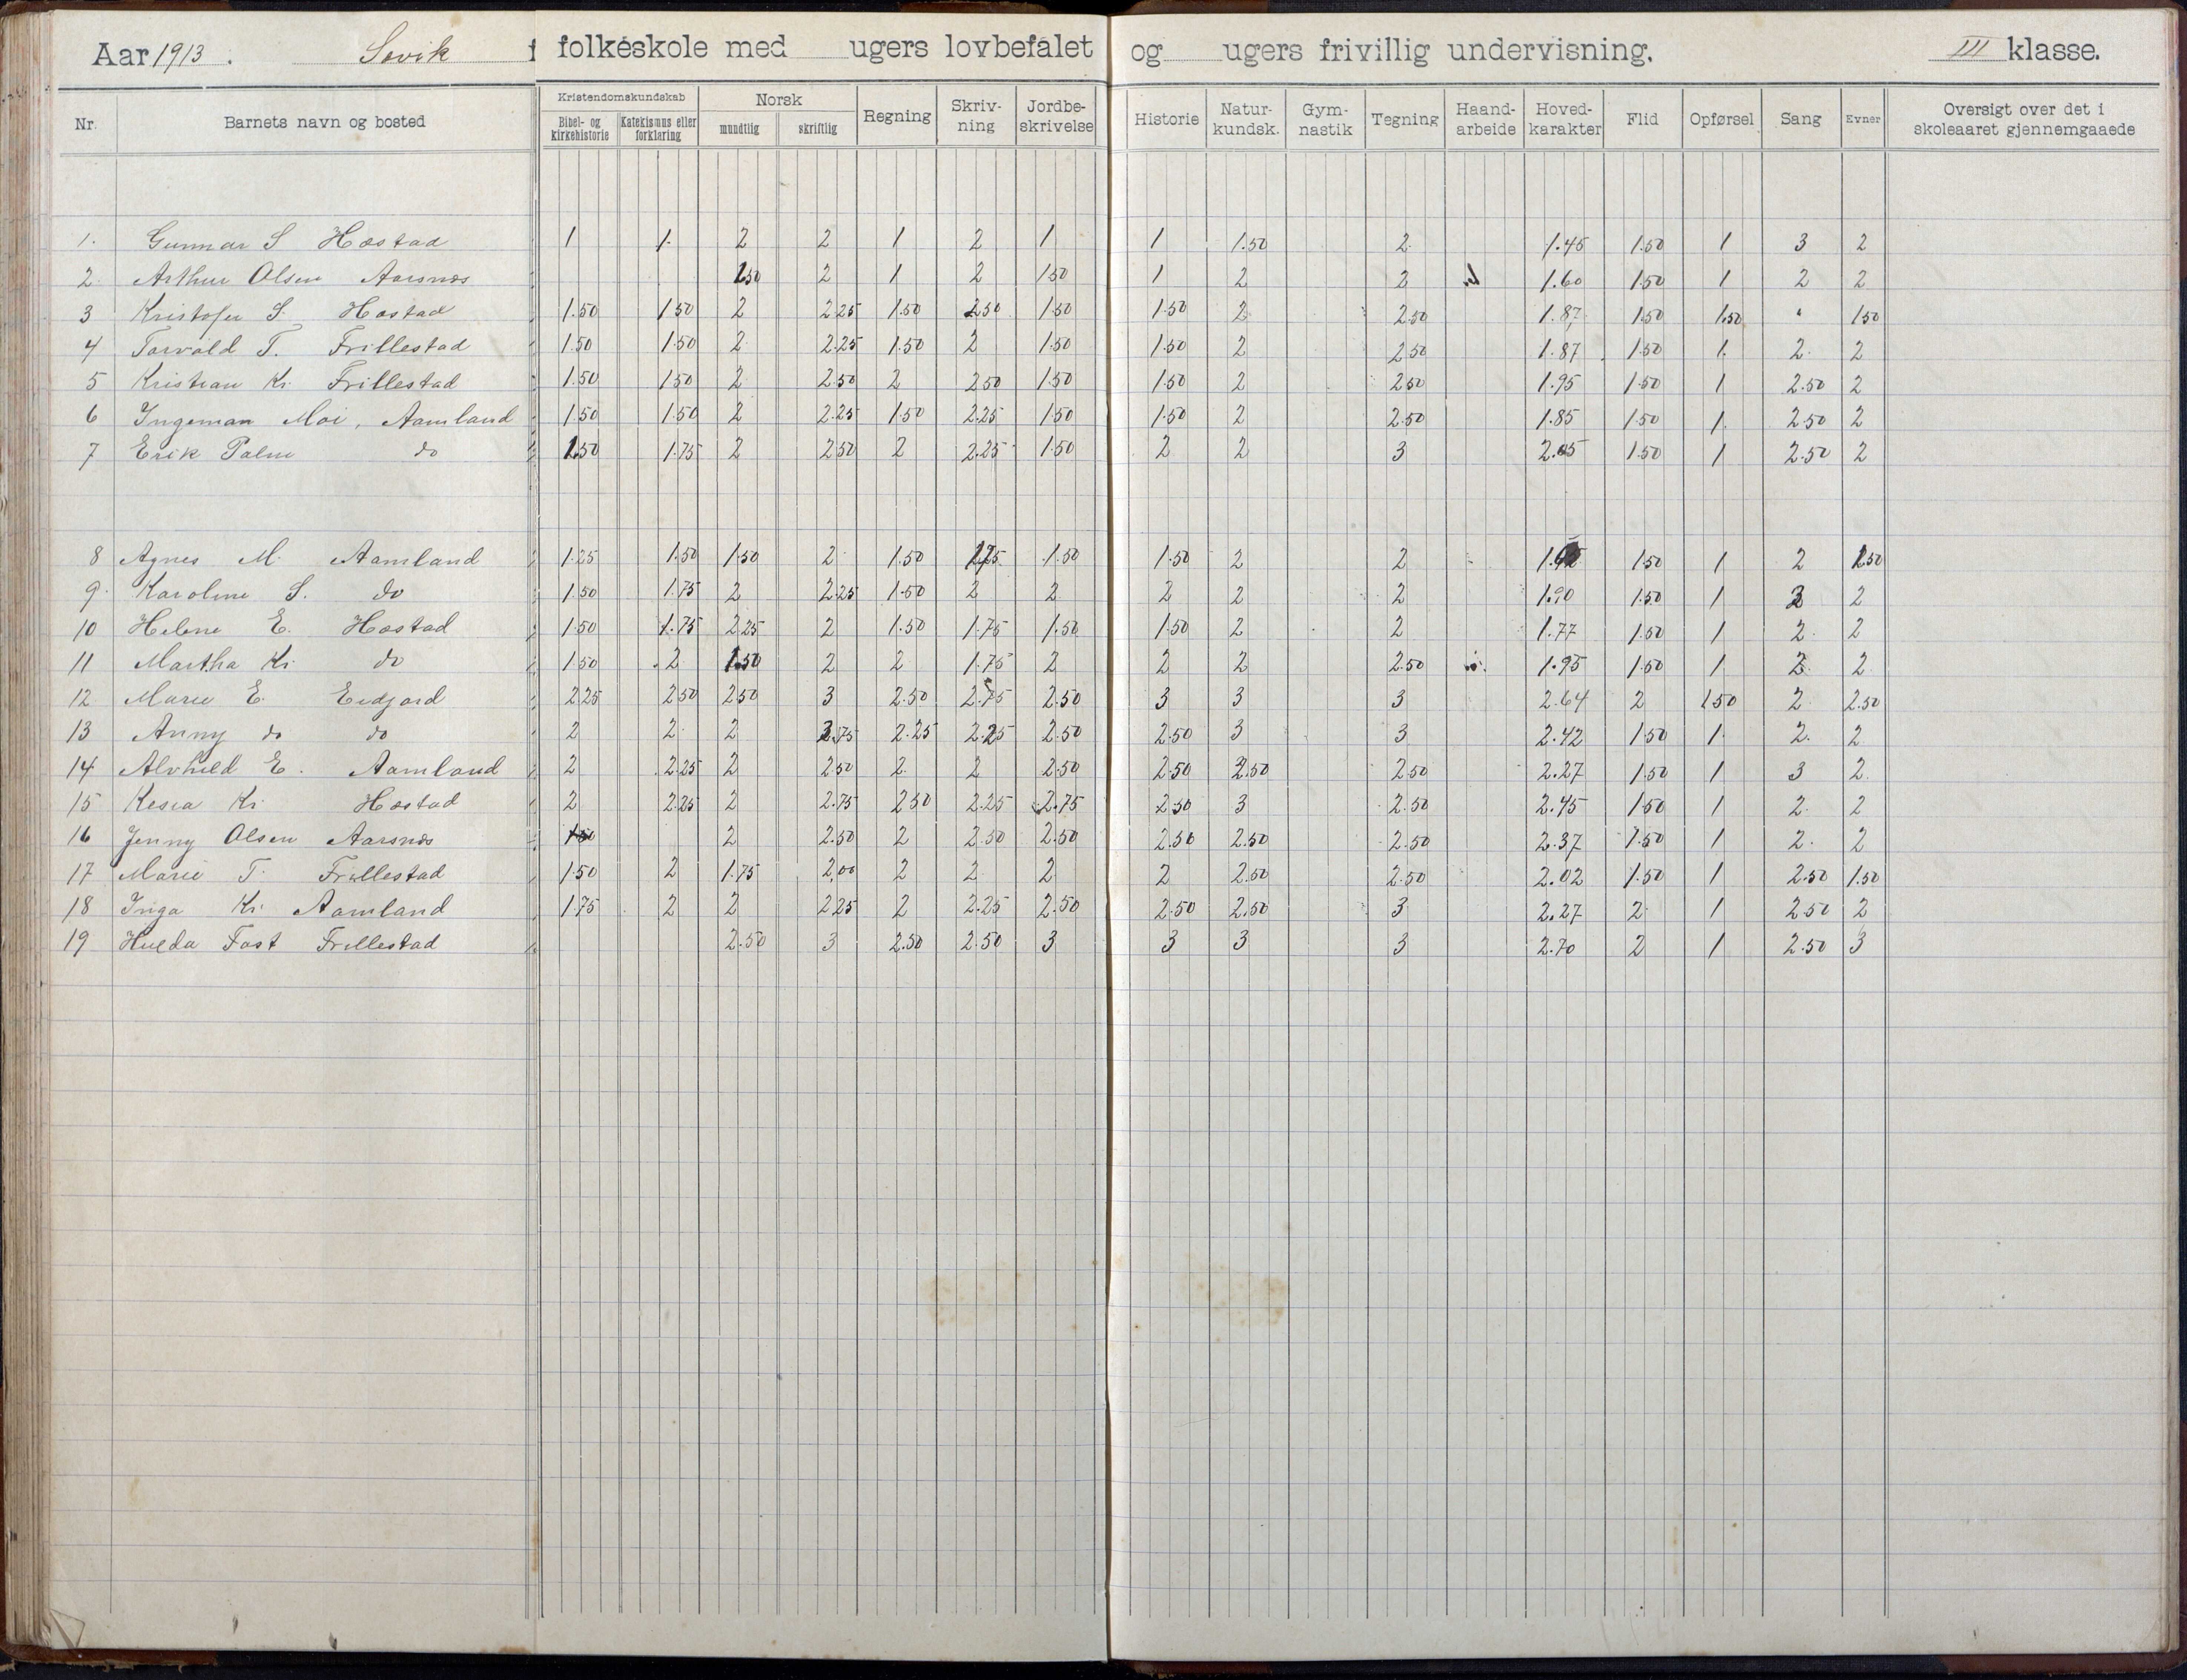 Aar 1913. Søvik f folkeskole med ugers lovbefalet og ugers frivillig undervisning. III klasse.
Nr. Barnets navn og bosted Kristendomskundskab Bibel- og kirkehistorie Katekismus eller forklaring Norsk mundtlig skriftlig Regning Skriv-ning Jordbe-skrivelse Historie Natur-kundsk. Gym-nastik Tegning Haand-arbeide Hoved-karakter Flid Opførsel Sang Evner Oversigt over det i skoleaaret gjennemgaaede
1. Gunnar S Hæstad 1 1. 2 2 1 2 1 1 1.50 2 1.45 1.50 1 3 2
2. Arthur Olsen Aarsnæs 1.50 2 1 2 1.50 1 2 2 1.60 1.50 1 2 2
3 Kristofer S. Hæstad 1.50 1.50 2 2.25 1.50 2.50 1.50 1.50 2 2.50 1.87 1.50 1.50 1.50
4 Torvald T. Frillestad 1.50 1.50 2 2.25 1.50 2 1.50 1.50 2 2.50 1.87 1.50 1. 2. 2
5 Kristian Kr. Frillestad 1.50 1.50 2 2.50 2 2.50 1.50 1.50 2 2.50 1.95 1.50 1 2.50 2
6 Ingeman Moi, Aamland 1.50 1.50 2 2.25 1.50 2.25 1.50 1.50 2 2.50 1.85 1.50 1. 2.50 2
7 Erik Palm do 1.50 1.75 2 2.50 2 2.25 1.50 2 2 3 2.05 1.50 1 2.50 2
8 Agnes M. Aamland 1.25 1.50 1.50 2 1.50 1.75 1.50 1.50 2 2 1.50 1 2 1.50
9. Karoline S. do 1.50 1.75 2 2.25 1.50 2 2 2 2 2 1.90 1.50 1 2
10 Helene E. Hæstad 1.50 1.75 2.25 2 1.50 1.75 1.50 1.50 2 2 1.77 1.50 1 2. 2
11 Martha Kr. do 1.50 2 1.50 2 2 1.75 2 2 2 2.50 1.95 1.50 1 2. 2
12 Marie E. Eidjord 2.25 2.50 2.50 3 2.50 2.75 2.50 3 3 3 2.64 2 1.50 2 2.50
13 Anny do do 2 2 2 2.75 2.25 2.25 2.50 2.50 3 3 2.42 1.50 1 2. 2
14 Alvhild E. Aamland 2 2.25 2 2.50 2 2 2.50 2.50 2.50 2.50 2.27 1.50 1 3 2
15 Kesia Kr. Hæstad 2 2.25 2 2.75 2.50 2.25 2.75 2.50 3 2.50 2.45 1.50 1 2. 2
16 Jenny Olsen Aarsnæs 2 2.50 2 2.50 2.50 2.50 2.50 2.50 2.37 1.50 1 2. 2
17 Marie T. Frillestad 1.50 2 1.75 2,00 2 2 2 2 2.50 2.50 2.02 1.50 1 2.50 1.50
18 Inga Kr. Aamland 1.75 2 2 2.25 2 2.25 2.50 2.50 2.50 3 2.27 2 1 2.50 2
19 Hulda Fost Frillestad 2.50 3 2.50 2.50 3 3 3 3 2.70 2 1 2.50 3